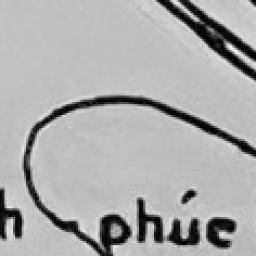 h phúc